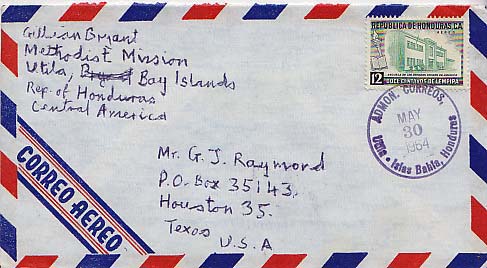 Gillian Bryant
Methodist Mission
Utila, Bay Islands
Rep. of Honduras
Central America
REPUBLICA DE HONDURAS, C.A.
AEREO
12
DOCE CENTAVOS DE LEMPIRA
ADMON. CORREOS,
MAY
30
1964
Utila • Islas Bahia, Honduras
CORREO AEREO
Mr. G. J. Raymond
P.O. Box 35143.
Houston 35.
Texas
U.S.A